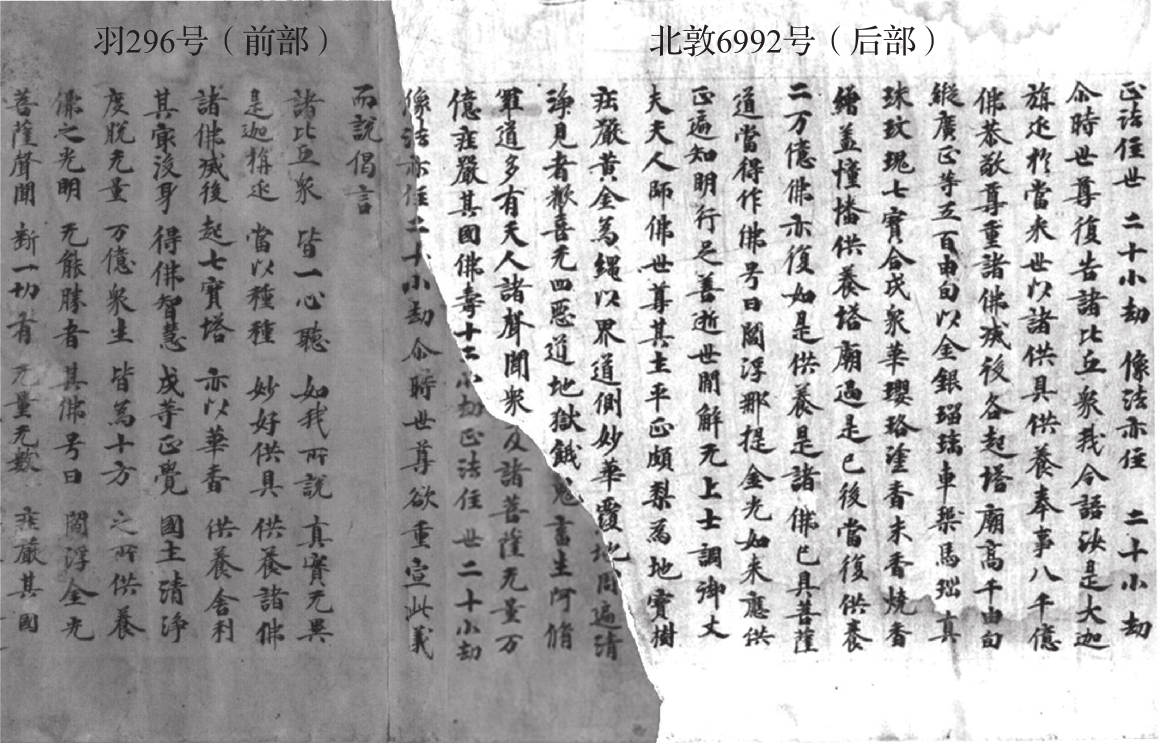 羽296号（前部）
北敦6992号（后部）
正法住世 二十小劫 像法亦住 二十小劫
尒時世尊復告諸比丘衆我今語汝是大迦
旃延於當来世以諸供具供養奉事八千億
佛恭敬尊重諸佛滅後各起塔廟高千由旬
縱廣正等五百由旬以金銀瑠璃車璖馬瑙真
珠玫瑰七寶合成衆華瓔珞塗香末香燒香
繒盖幢幡供養塔廟過是已後當復供養
二万億佛亦復如是供養是諸佛已具菩薩
道當得作佛号曰閻浮那提金光如来應供
正遍知明行足善逝世間解无上士調御丈
夫天人師佛世尊其土平正頗梨為地寶樹
莊嚴黄金為繩以界道側妙華覆地周遍清
淨見者歡喜无四惡道地獄餓鬼畜生阿脩
羅道多有天人諸聲聞衆及諸菩薩无量万
億莊嚴其國佛壽十二小劫正法住世二十小劫
像法亦住二十小劫尒時世尊欲重宣此義
而説偈言
諸比丘衆 皆一心聽 如我所説 真實无異
是迦旃延 當以種種 妙好供具 供養諸佛
諸佛滅後 起七寶塔 亦以華香 供養舍利
其冣後身 得佛智慧 成等正覺 國土清淨
度脱无量 万億衆生 皆為十方 之所供養
佛之光明 无能勝者 其佛号曰 閻浮金光
菩薩聲聞 斷一切有 无量无數 莊嚴其國